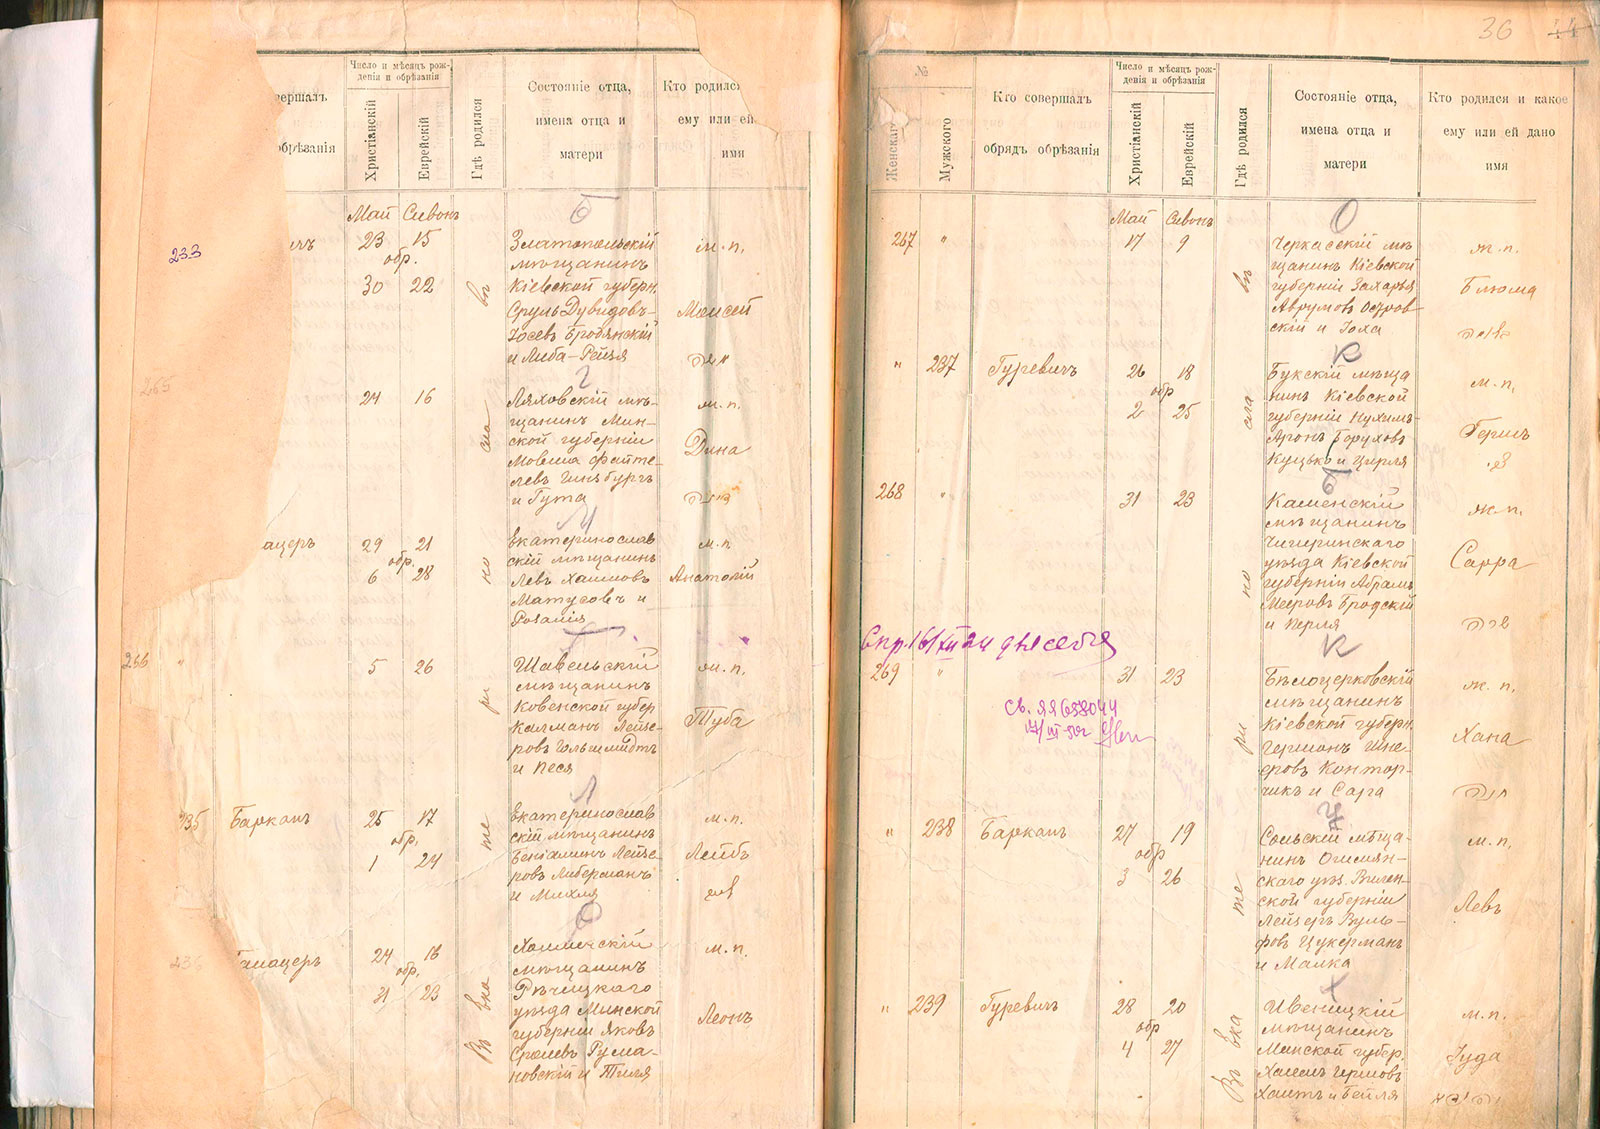 36 44
овершалъ
обрѣзанія
Число и мѣсяцъ рож-
денія и обрѣзанія
Христіанскій
Еврейскій
Гдѣ родился
Состояніе отца,
имена отца и
матери
Кто родилс
ему или ей
имя
Май Сивонъ
233
ичъ
23 15
обр.
30 22
Златопольскій
мѣщанинъ
Кіевской губерн.
Сруль Дувидовъ-
Іосевъ Бродянскій
и Либа-Рейзя
м. п.
Моисей
משה
265
24 16
Ляховскій мѣ-
щанинъ Мин-
ской губерніи
Мовша Файте-
левъ Гинзбургъ
и Гута
Дина
דינה
ацеръ
29 21
обр.
6 28
Екатеринослав
скій мѣщанинъ
Левъ Хаимовъ
Матусовъ и
Розалія
м. п.
Анатолій
266 "
5 26
Шавельскій
мѣщанинъ
Ковенской губер
Калманъ Лейзе-
ровъ Гольшмидтъ
и Песя
Туба
235 Барканъ
25 17
обр.
1 24
Екатеринослав
скій мѣщанинъ
Беніаминъ Лейзе-
ровъ Либерманъ
и Михля
м. п.
Лейбъ
236
24 16
обр.
31 23
мѣщанинъ
Рѣчицкаго
уѣзда Минской
губерніи Яковъ
Сролевъ Рума-
новскій и Тиля
м. п.
Леонъ
Въ Ека те ри но сла въ
№
Женскаго
Мужского
Кто совершалъ
обрядъ обрѣзанія
Число и мѣсяцъ рож-
денія и обрѣзанія
Христіанскій
Еврейскій
Гдѣ родился
Состояніе отца,
имена отца и
матери
Кто родился и какое
ему или ей дано
имя
Май Сивонъ
267 "
17 9
Черкасскій мѣ
щанинъ Кіевской
губерніи Захарья
Аврумовъ Остров-
скій и Іоха
ж. п.
Блюма
" 237 Гуревичъ
26 18
обр
2 25
Букскій мѣща
нинъ Кіевской
губерніи Нухимъ-
Аронъ Боруховъ
Куцько и Цирля
м. п.
Гершъ
268 "
31 23
Каменскій
мѣщанинъ
Чигиринскаго
уѣзда Кіевской
губерніи Абрамъ
Мееровъ Бродскій
и Перля
ж. п.
Сарра
שרה
269 "
31 23
Бѣлоцерковскій
мѣщанинъ
Кіевской губерн.
Гершонъ Шне-
еровъ Контор-
чикъ и Сарга
ж. п.
Хана
חנה
" 238 Барканъ
27 19
обр
3 26
Сольскій мѣща-
нинъ Ошмян-
скаго уѣз. Вилен-
ской губерніи
Лейзеръ Вуль-
фовъ Цукерманъ
и Малка
м. п.
Левъ
" 239 Гуревичъ
28 20
обр
4 27
Ивеницкій
мѣщанинъ
Минской губер.
Хаимъ Гершовъ
Хаитъ и Бейля
м. п.
Іуда
יהודה
Въ Ека те ри но сла въ